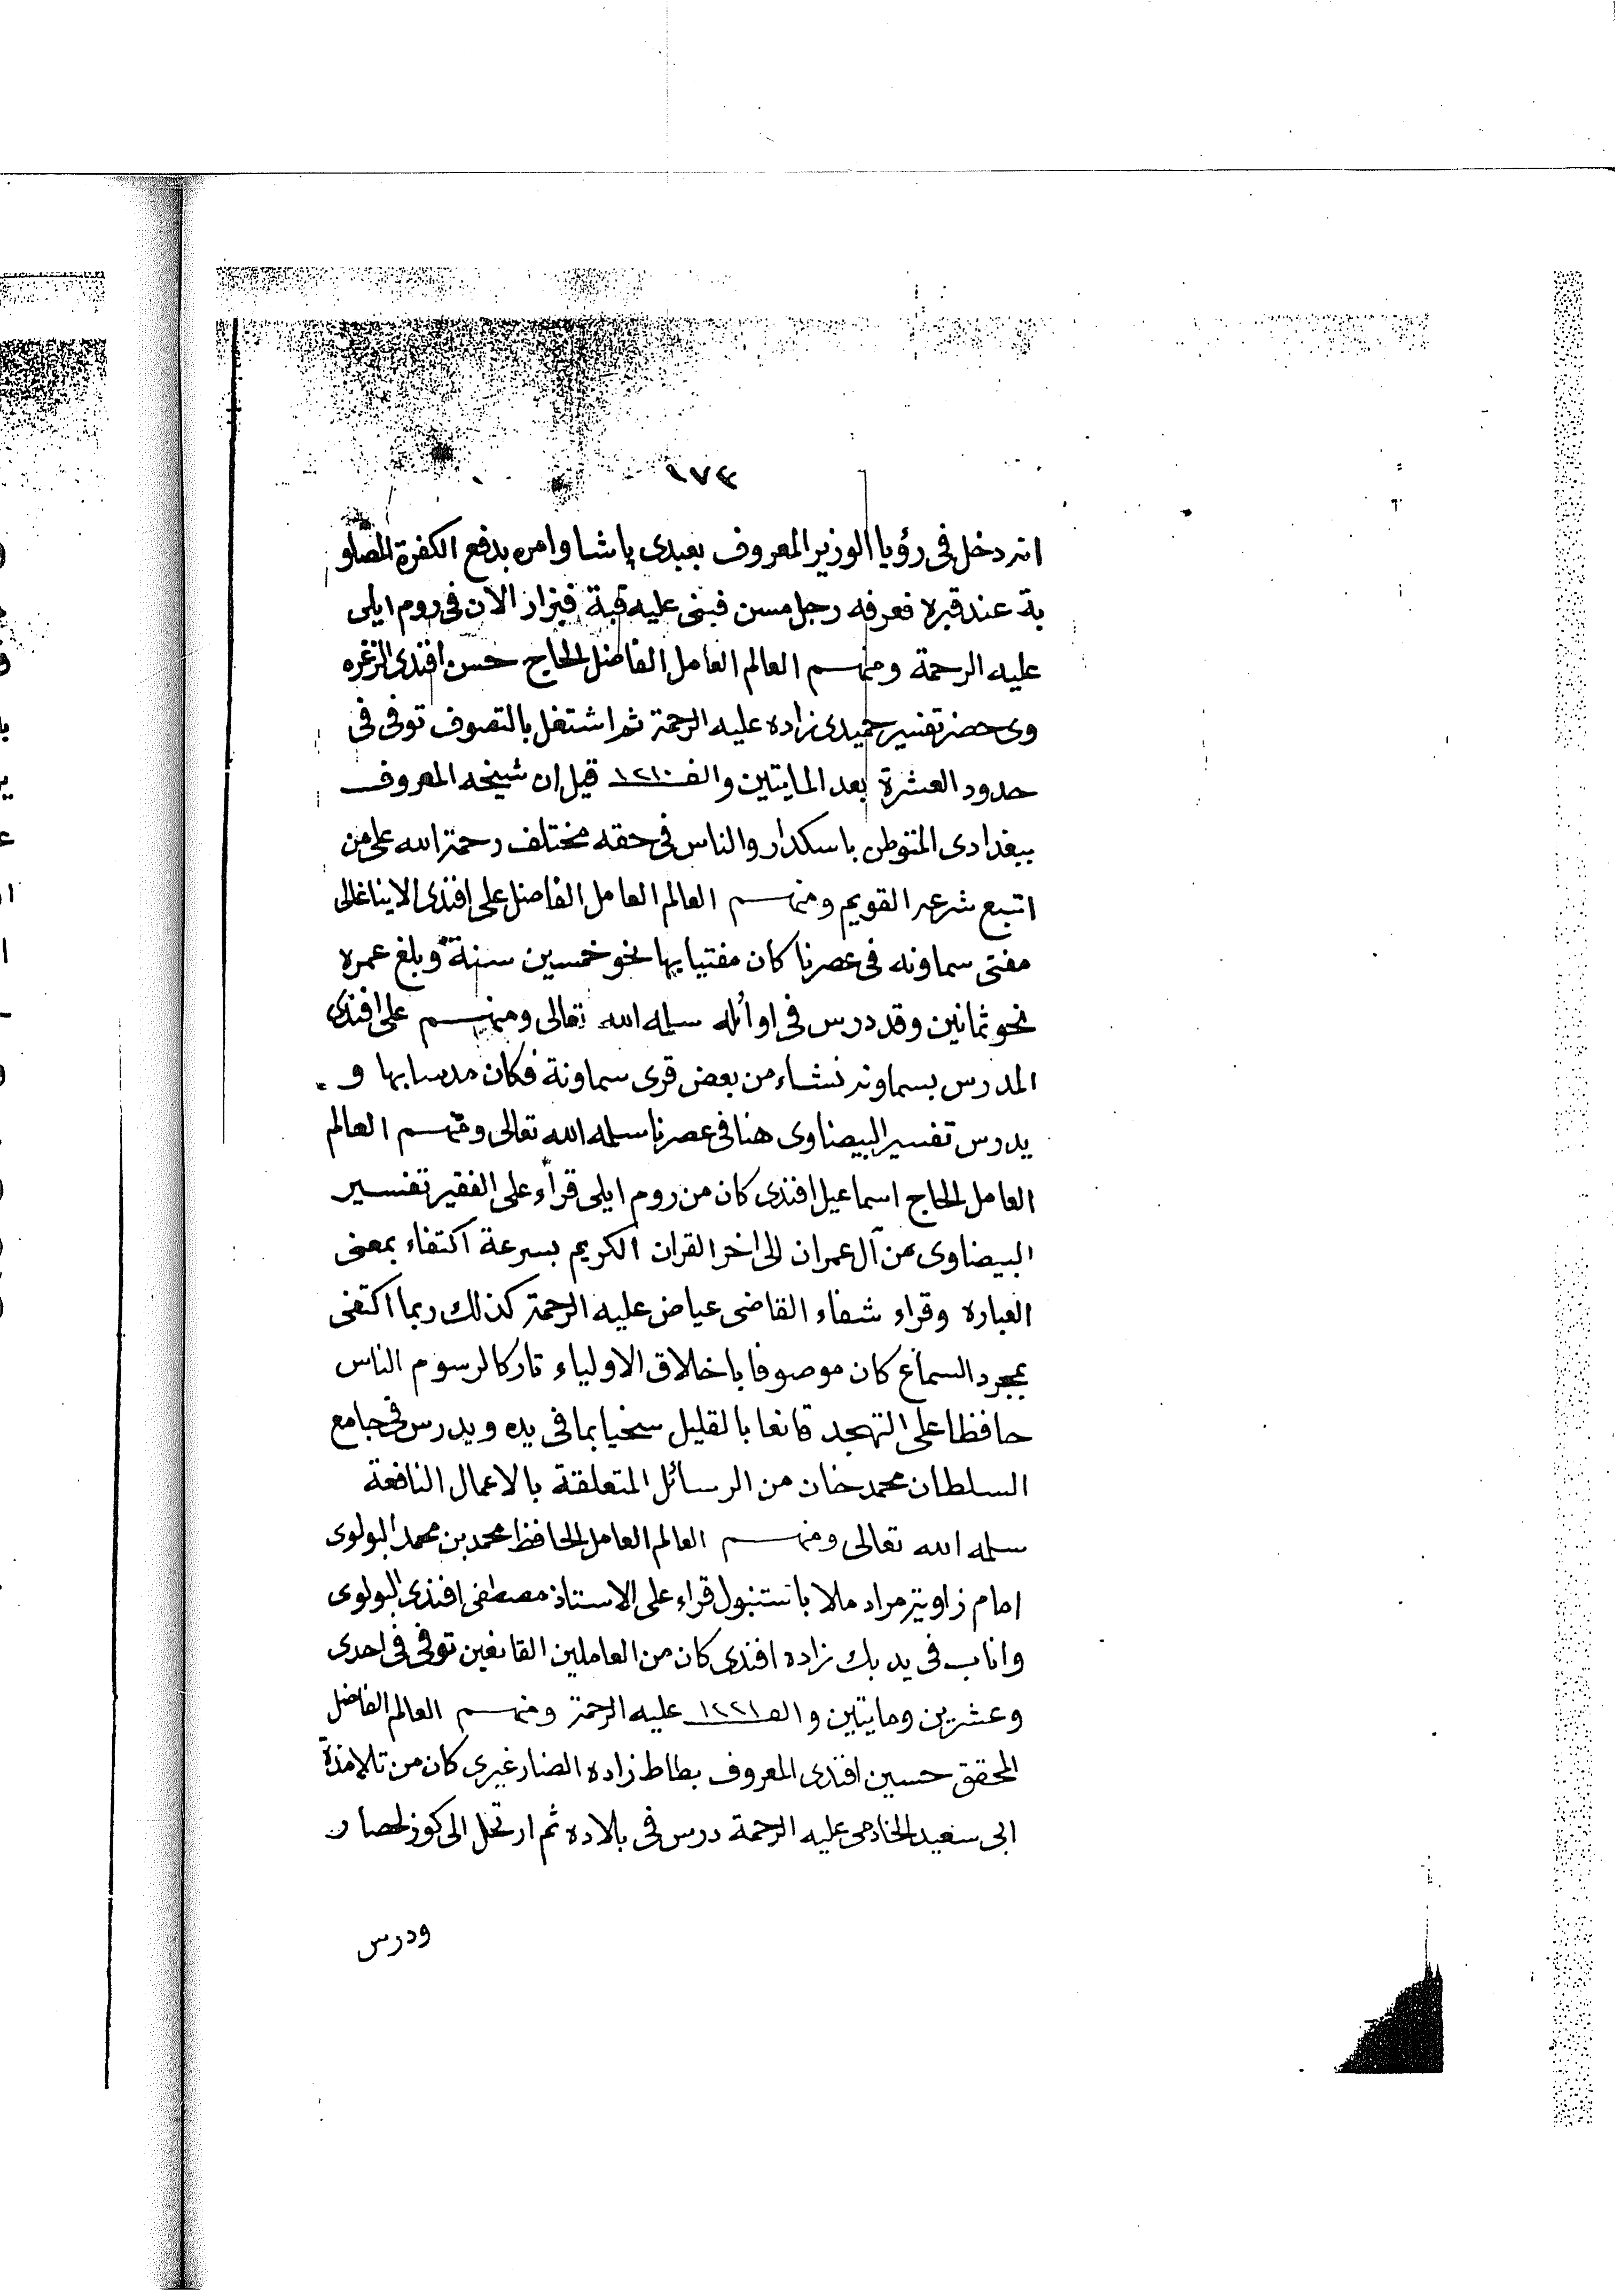 ١٧٤
انه دخل في رؤيا الوزير المعروف بعبدى پاشا وامره بدفع الكفرة المصلو
بة عند قبره فعرفه رجل مسن فبنى عليه قبة فيزار الآن في روم ايلى
عليه الرحمة ومنهم العالم العامل الفاضل الحاج حسن افندى الزغره
وى حضر تفسير حميدى زاده عليه الرحمة ثم اشتغل بالتصوف توفى فى
حدود العشرة بعد المايتين والف ١٢١٠ قيل ان شيخه المعروف
ببغدادى المتوطن باسكدار والناس في حقه مختلف رحمة الله على من
اتبع شرعه القويم ومنهم العالم العامل الفاضل على افندى الايناغالى
مفتى سماونه فى عصرنا كان مفتيا بها نحو خمسين سنة وبلغ عمره
نحو ثمانين وقد درس فى اوائله سلمه الله تعالى ومنهم على افندى
المدرس بسماونه نشاء من بعض قرى سماونة فكان مدرسا بها و
يدرس تفسير البيضاوى هنا فى عصرنا سلمه الله تعالى ومنهم العالم
العامل الحاج اسماعيل افندى كان من روم ايلى قراء على الفقير تفسير
البيضاوى من آل عمران الى اخر القران الكريم بسرعة اكتفاء بمعنى
العباره وقراء شفاء القاضى عياض عليه الرحمة كذلك ربما اكتفى
بمجرد السماع كان موصوفا باخلاق الاولياء تاركا لرسوم الناس
حافظا على التهجد قانعا بالقليل سخيا بما فى يده ويدرس فى جامع
السلطان محمد خان من الرسائل المتعلقة بالاعمال النافعة
سلمه الله تعالى ومنهم العالم العامل الحافظ محمد بن محمد البولوى
امام زاوية مراد ملا باستنبول قراء على الاستاذ مصطفى افندى البولوى
واناب فى يد بك زاده افندى كان من العاملين القانعين توفى فى احدى
وعشرين ومايتين والف ١٢٢١ عليه الرحمة ومنهم العالم الفاضل
المحقق حسين افندى المعروف بطاط زاده الضارغيرى كان من تلامذة
ابى سعيد الخادمى عليه الرحمة درس فى بلاده ثم ارتحل الى كوزلحصار
ودرس